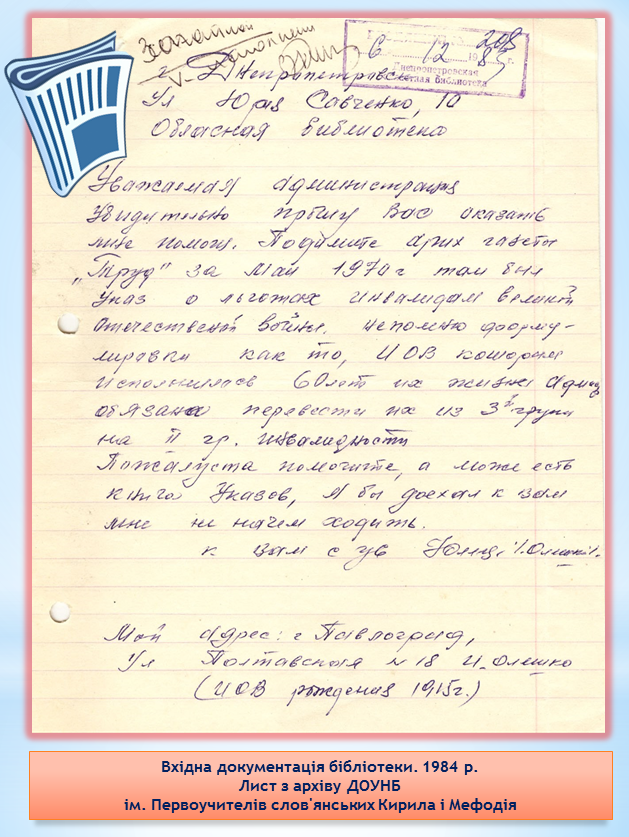 6 12 1984 г.
Днепропетровская
областная библиотека
г. Днепропетровск
Ул Юрия Савченко, 10
Обласная библиотека
Уважаемая администрация
убидительно прошу Вас оказать
мне помощ. Подимите архив газеты
"Труд" за Май 1970 г там был
Указ о льготах инвалидам велик
Отечественой войны. непомню форму-
лировки как то, ИОВ которым
исполнилось 60 лет их жизни
обязана перевести их из 3й групы
на II гр. инвалидности
Пожалуста помогите, а може есть
книга Указов, Я бы доехал к вам
мне не начем ходить.
к вам с ув
Мой адрес: г Павлоград,
Ул Полтавская № 18 И. Олешко
(ИОВ рождения 1915 г.)
Вхідна документація бібліотеки. 1984 р.
Лист з архіву ДОУНБ
ім. Первоучителів слов'янських Кирила і Мефодія